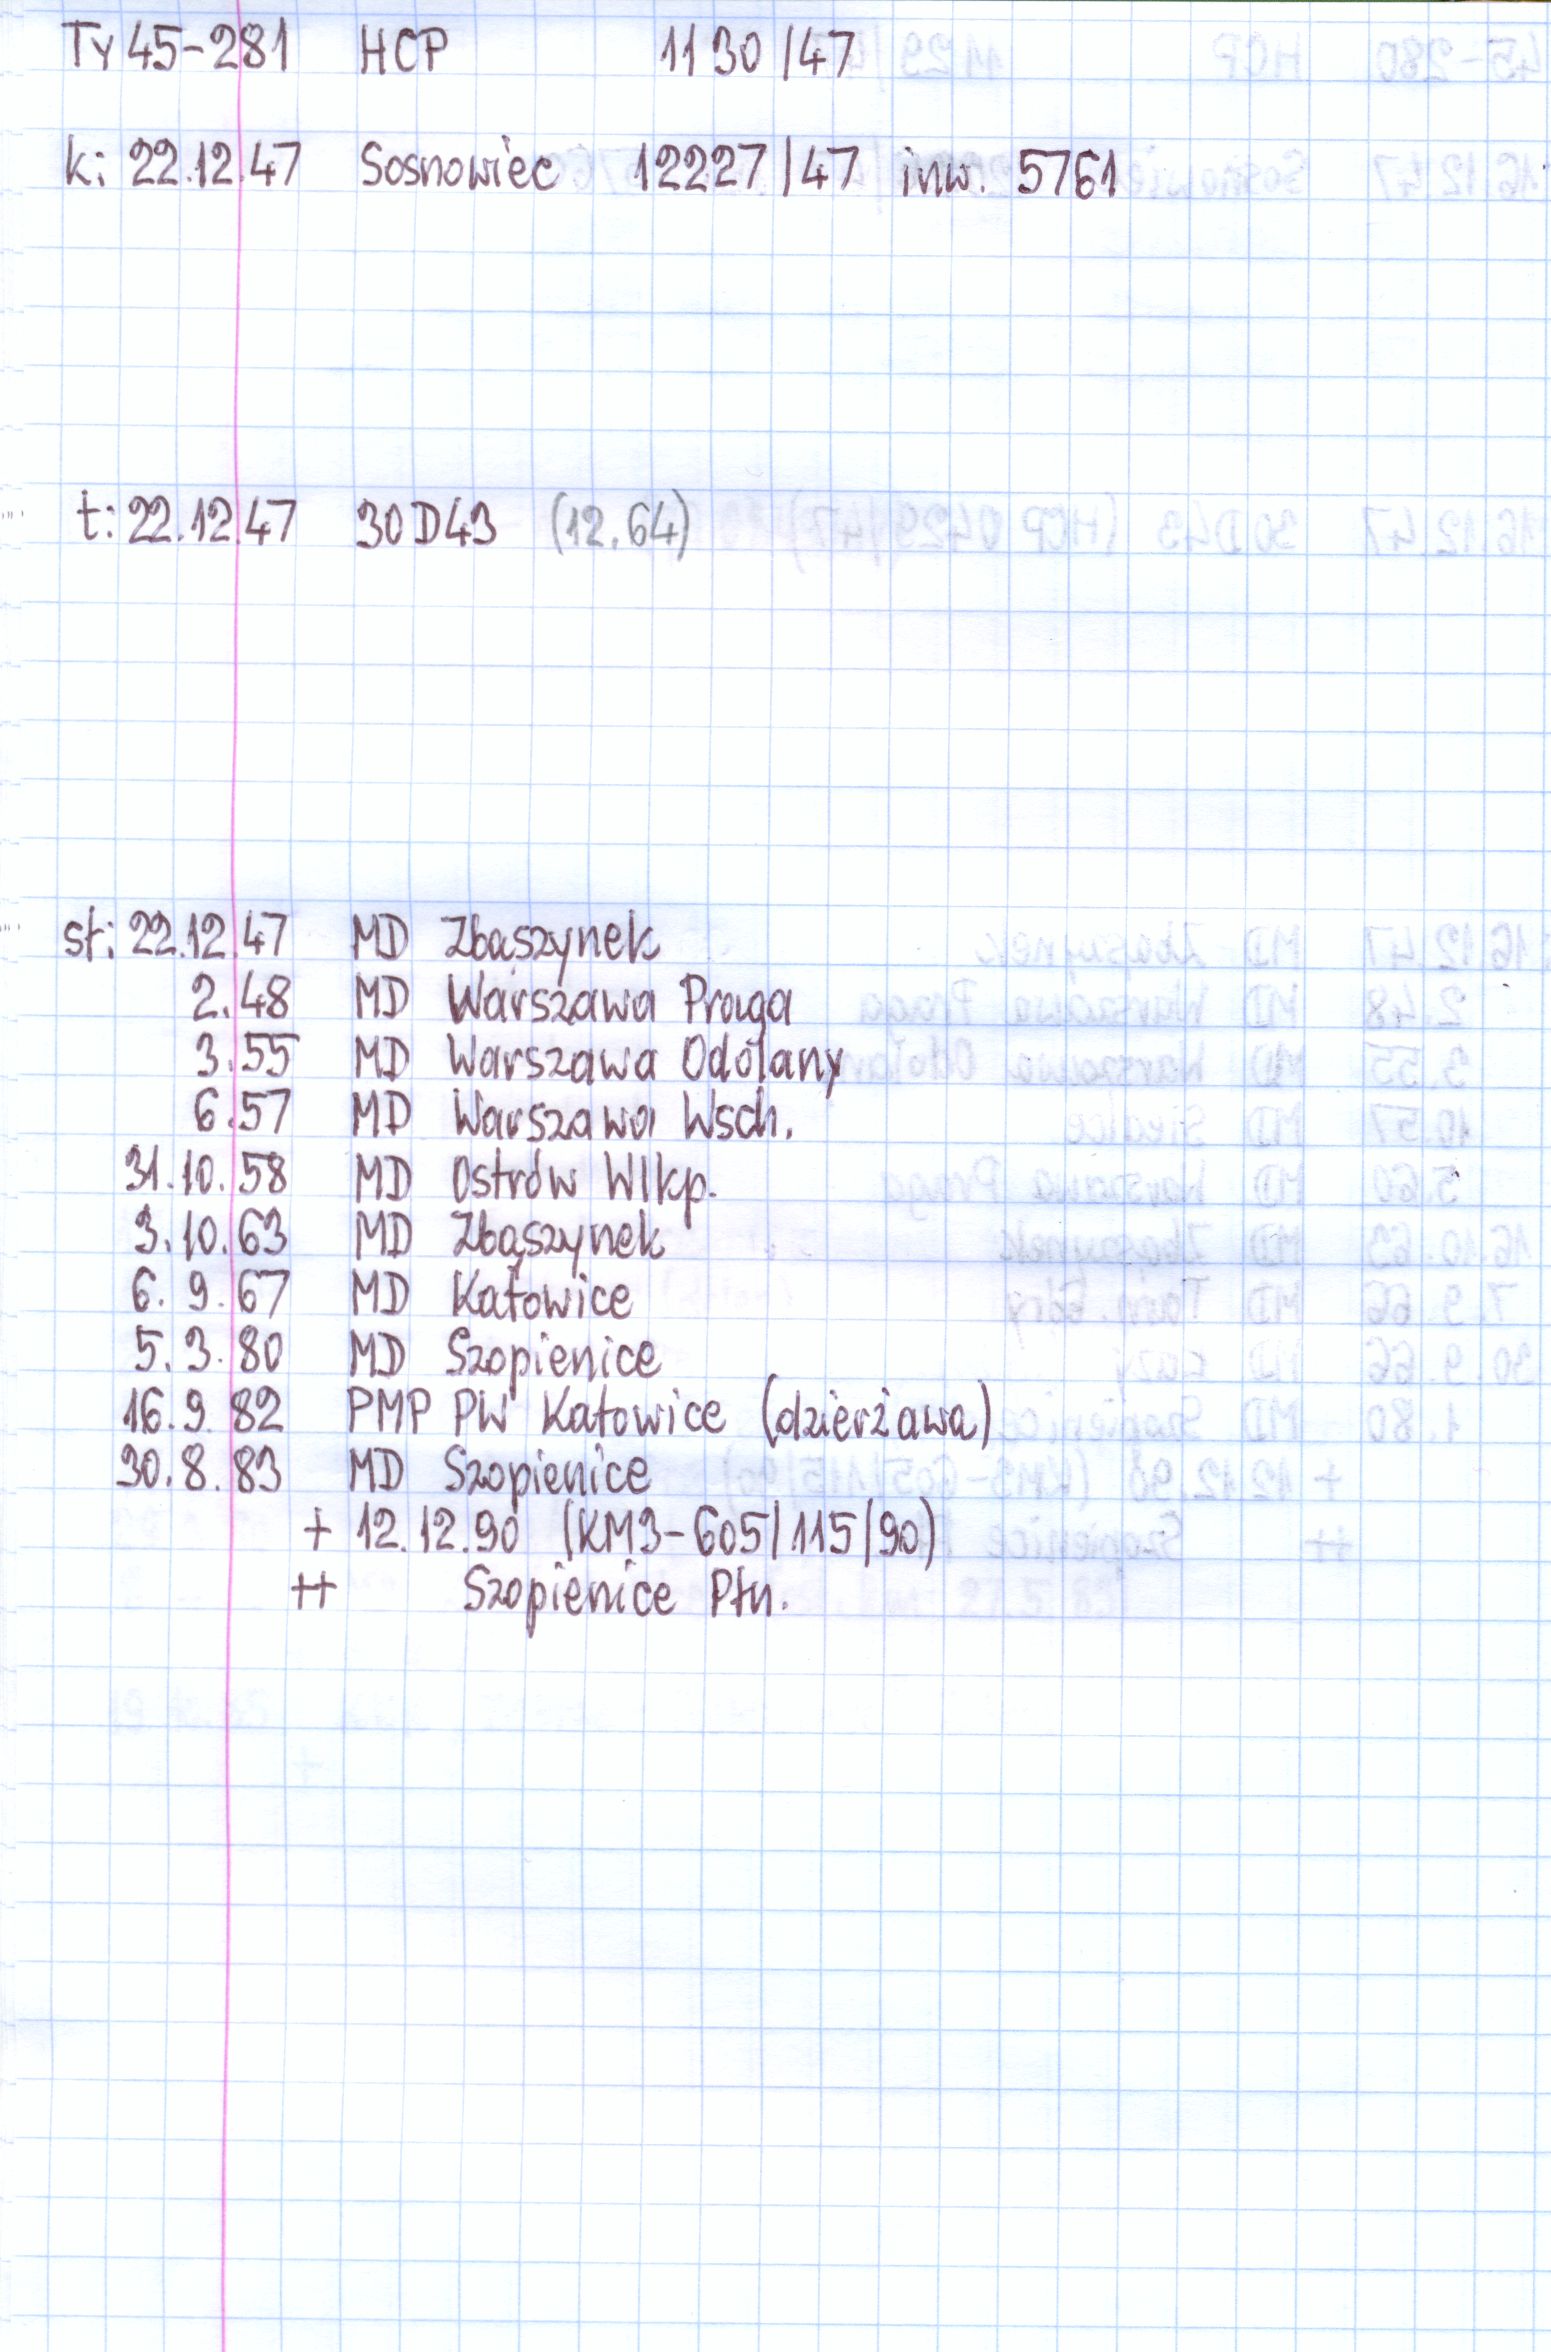 Ty 45-281 HCP 1130/47
k: 22.12.47 Sosnowiec 12227/47 inw. 5761
t: 22.12.47 30D43 (12.64)
st: 22.12.47 MD Zbąszynek
2.48 MD Warszawa Praga
3.55 MD Warszawa Odolany
6.57 MD Warszawa Wsch.
31.10.58 MD Ostrów Wlkp.
3.10.63 MD Zbąszynek
6.9.67 MD Katowice
5.3.80 MD Szopienice
16.9.82 PMP PW Katowice (dzierżawa)
30.8.83 MD Szopienice
+ 12.12.90 (KM3-605/115/90)
++ Szopienice Płn.